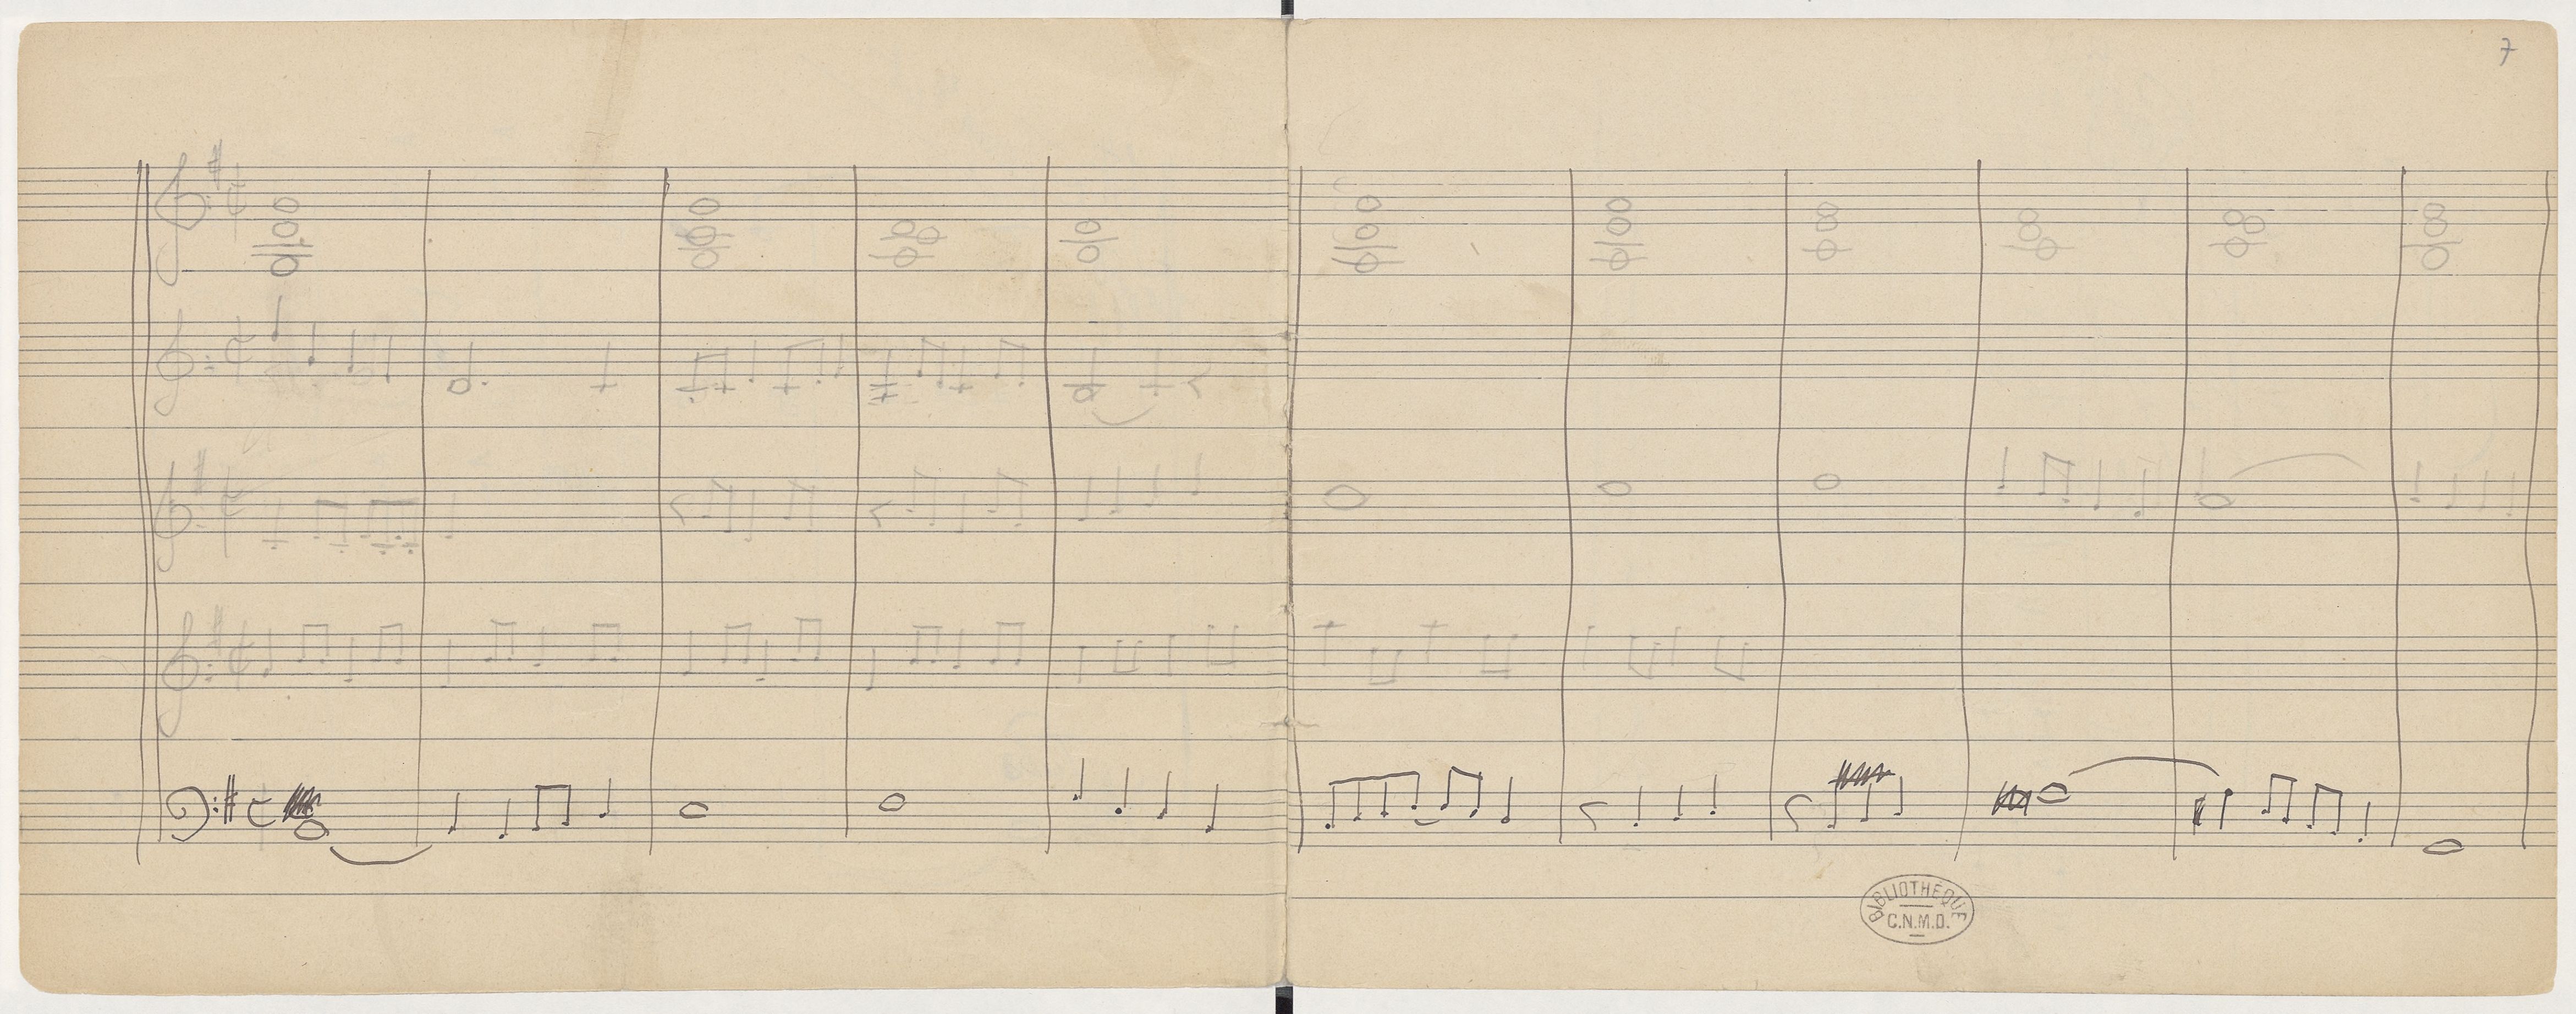 7
BIBLIOTHÈQUE
C.N.M.D.